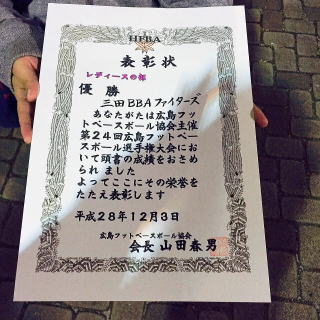 HFBA
表彰状
レディースの部
優勝
三田BBAファイターズ
あなたがたは広島フッ
トベースボール協会主催
第24回広島フットベー
スボール選手権大会にお
いて頭書の成績をおさめ
られました
よってここにその栄誉を
たたえ表彰します
平成28年12月3日
広島フットベースボール協会
会長 山田春男